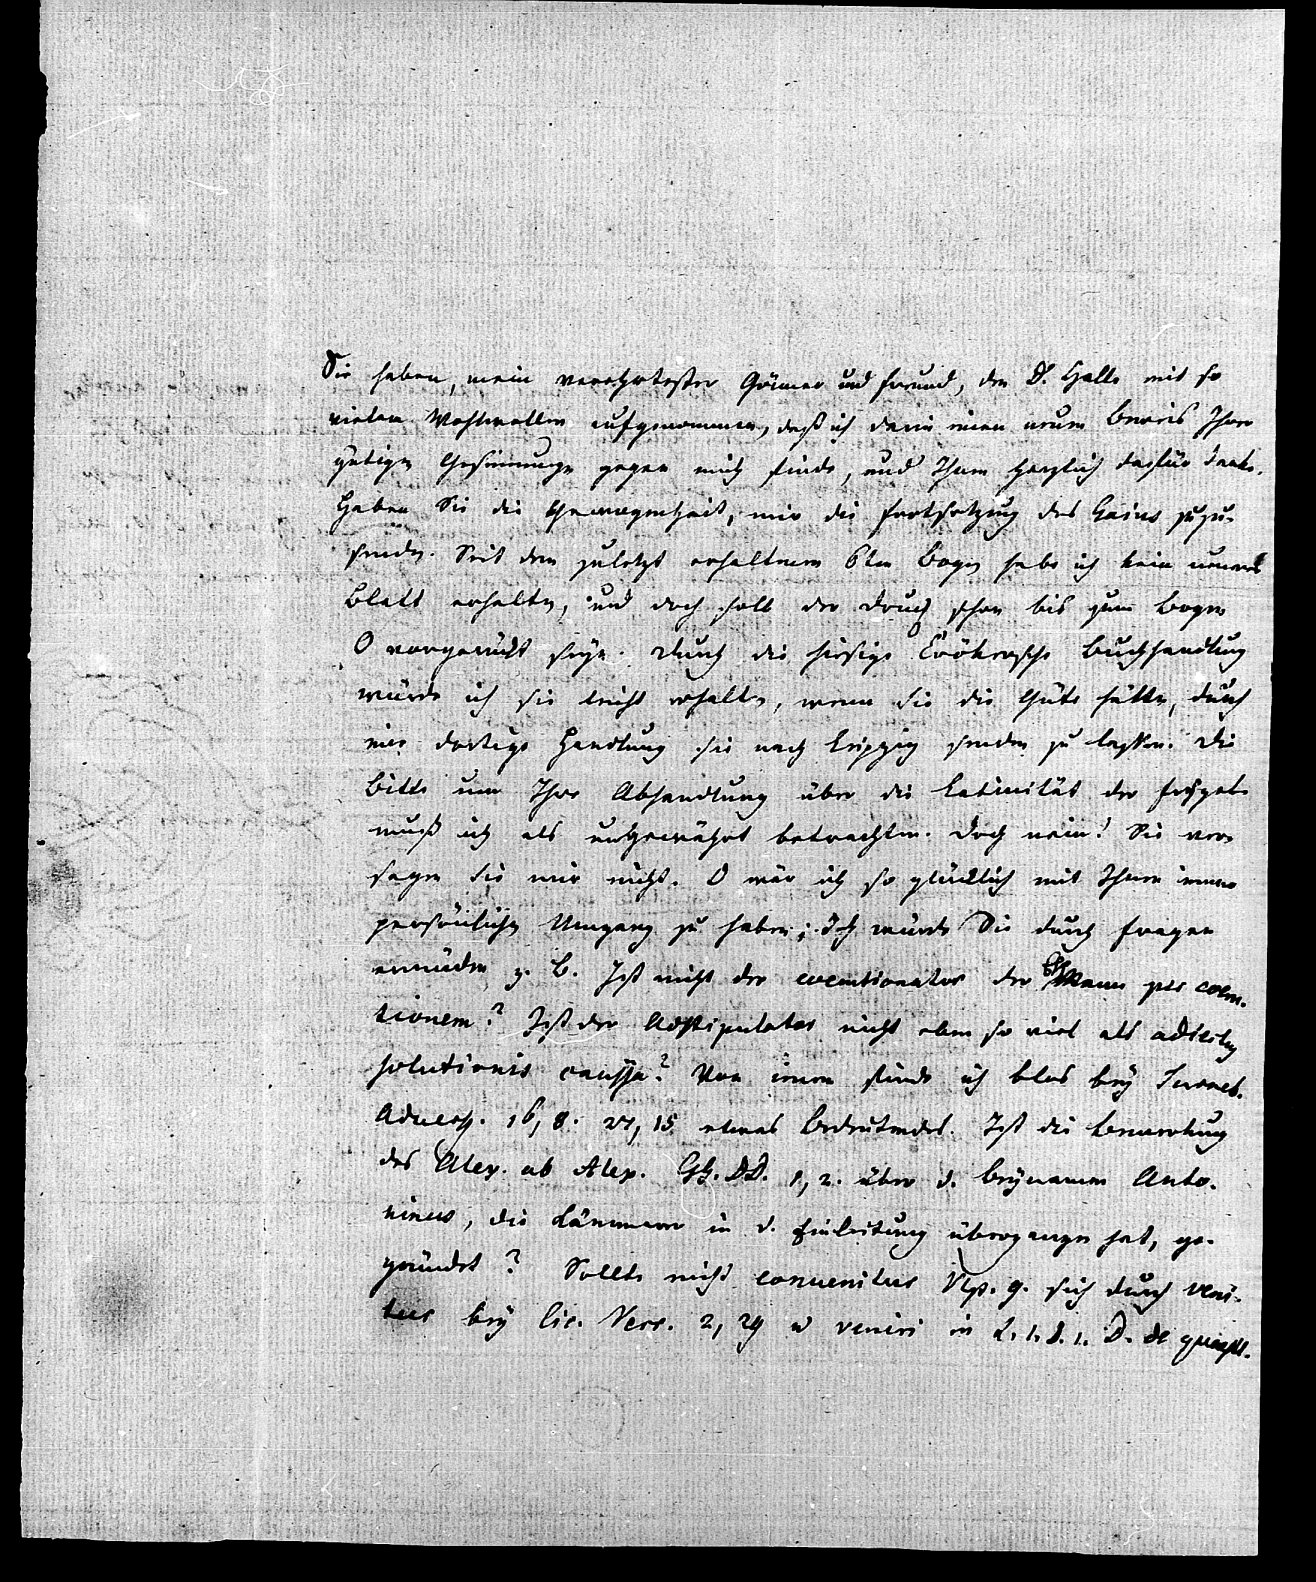 Sie haben, mein verehrtester Gönner und Freund, den D. Halle mit so
vielem Wohlwollen aufgenommen, daß ich darin einen neuen Beweis Ihrer
gütigen Gesinnungen gegen mich finde, und Ihnen herzlich dafür danke.
Haben Sie die Gewogenheit, mir die Fortsetzung des Gaius zuzu-
senden. Seit dem zuletzt erhaltenen 6ten Bogen habe ich kein neues
Blatt erhalten, und doch soll der Druck schon bis zum Bogen
O vorgerückt seyn. Durch die hiesige Crökersche Buchhandlung
würde ich sie leicht erhalten, wenn Sie die Güte hätten, durch
eine dortige Handlung sie nach Leipzig senden zu lassen. Die
Bitte um Ihre Abhandlung über die Latinität der
muß ich als ungewährt betrachten. Doch nein! Sie ver-
sagen sie mir nicht. O wär ich so glücklich mit Ihnen
persönlichen Umgang zu haben; Ich würde Sie durch Fragen
ermüden z. B. Ist nicht der coemtionator der Mann per coem-
tionem? Ist der Adstipulator nicht eben so viel als adiectus
solutionis caussa? Von jenem finde ich blos bey Turneb.
Advers. 16, 8. 27, 15 etwas Bedeutendes. Ist die Bemerkung
des Alex. ab Alex. G. DD. 1, 2. über d. Beynamen Anto-
ninus, die Hänmann in d. Einleitung übergangen hat, ge-
gründet? Sollte nicht conuenitur Ulp. 9. sich durch veni-
tur bey Cic. Verr. 2, 29 u veniri in L. 1. §. 1. D. de quaest.